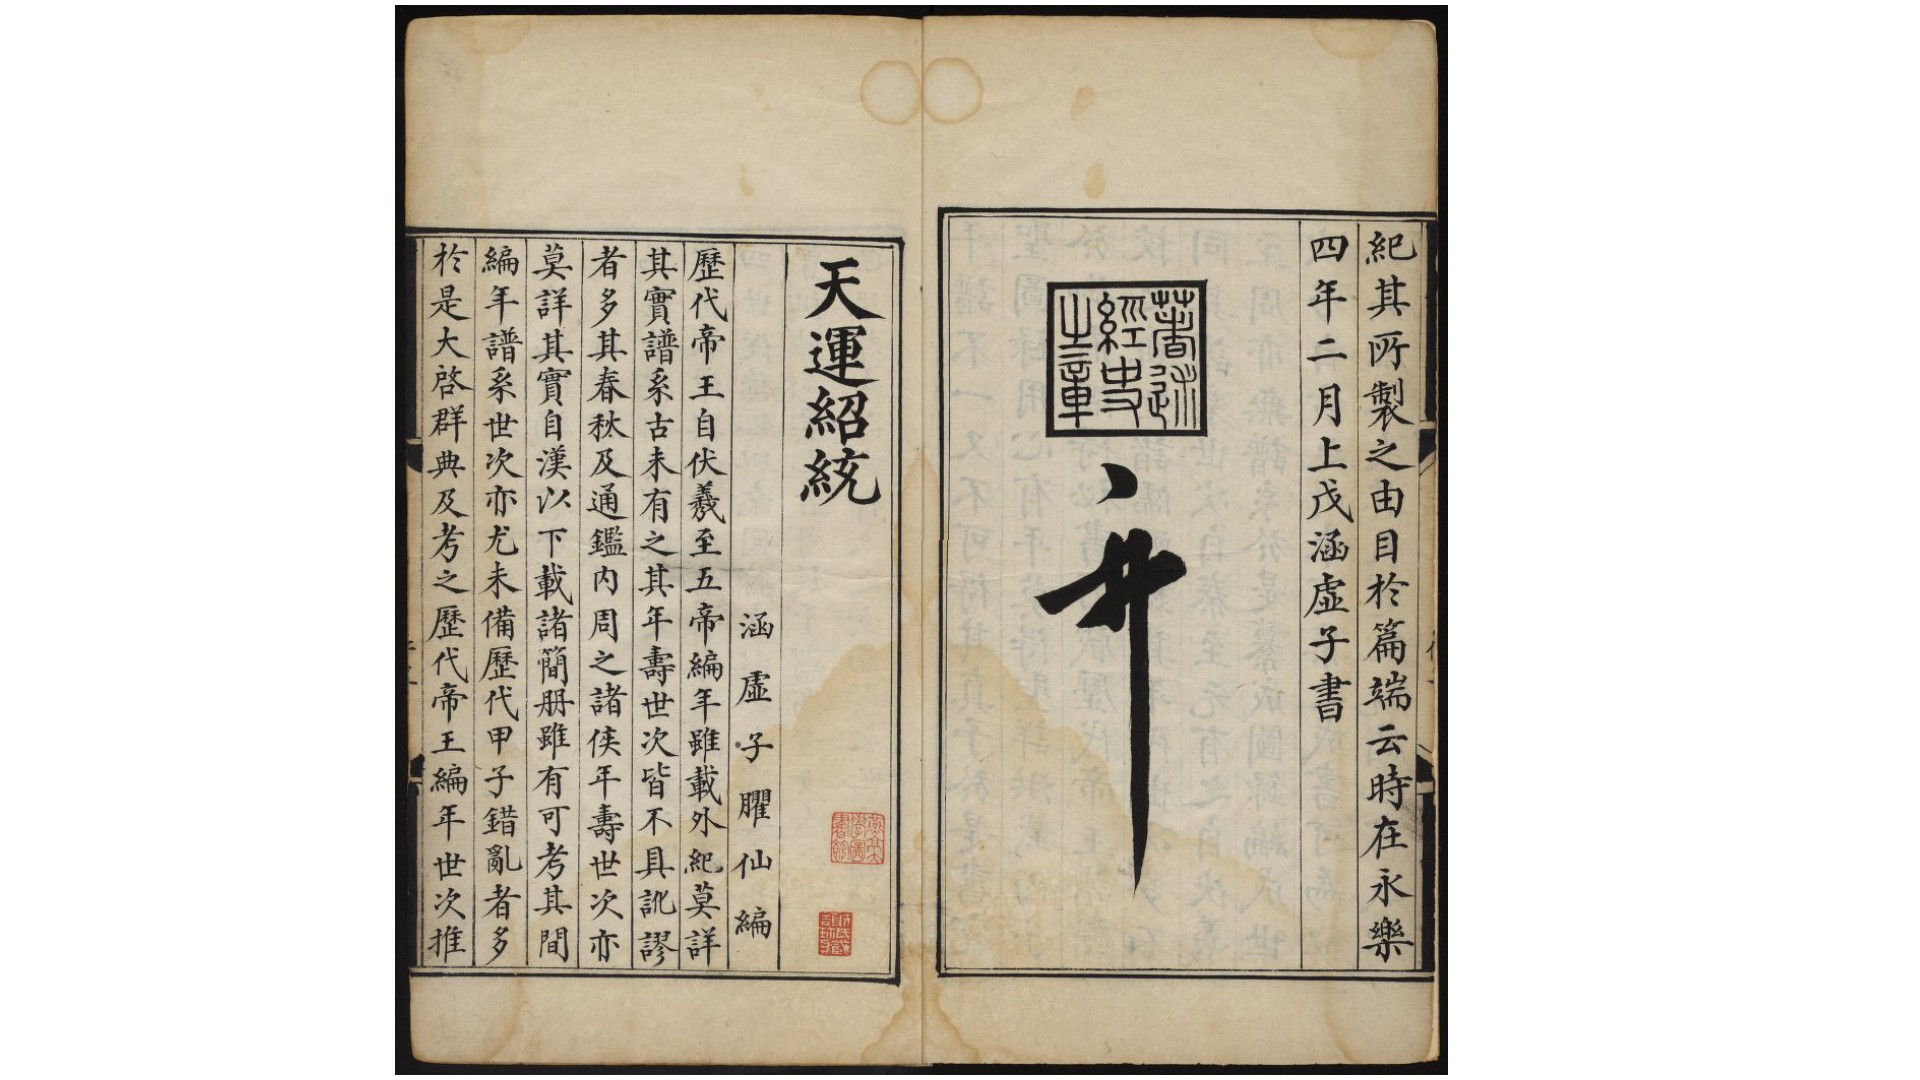 紀其所製之由目於篇端云時在永樂
四年二月上戊涵虛子書
著述
經史
之章
天運紹統
涵虛子臞仙編
歷代帝王自伏羲至五帝編年雖載外紀莫詳
其實譜系古未有之其年壽世次皆不具訛謬
者多其春秋及通鑑內周之諸侯年壽世次亦
莫詳其實自漢以下載諸簡册雖有可考其間
編年譜系世次亦尤未備歷代甲子錯亂者多
於是大啓群典及考之歷代帝王編年世次推
燕京大學圖書館